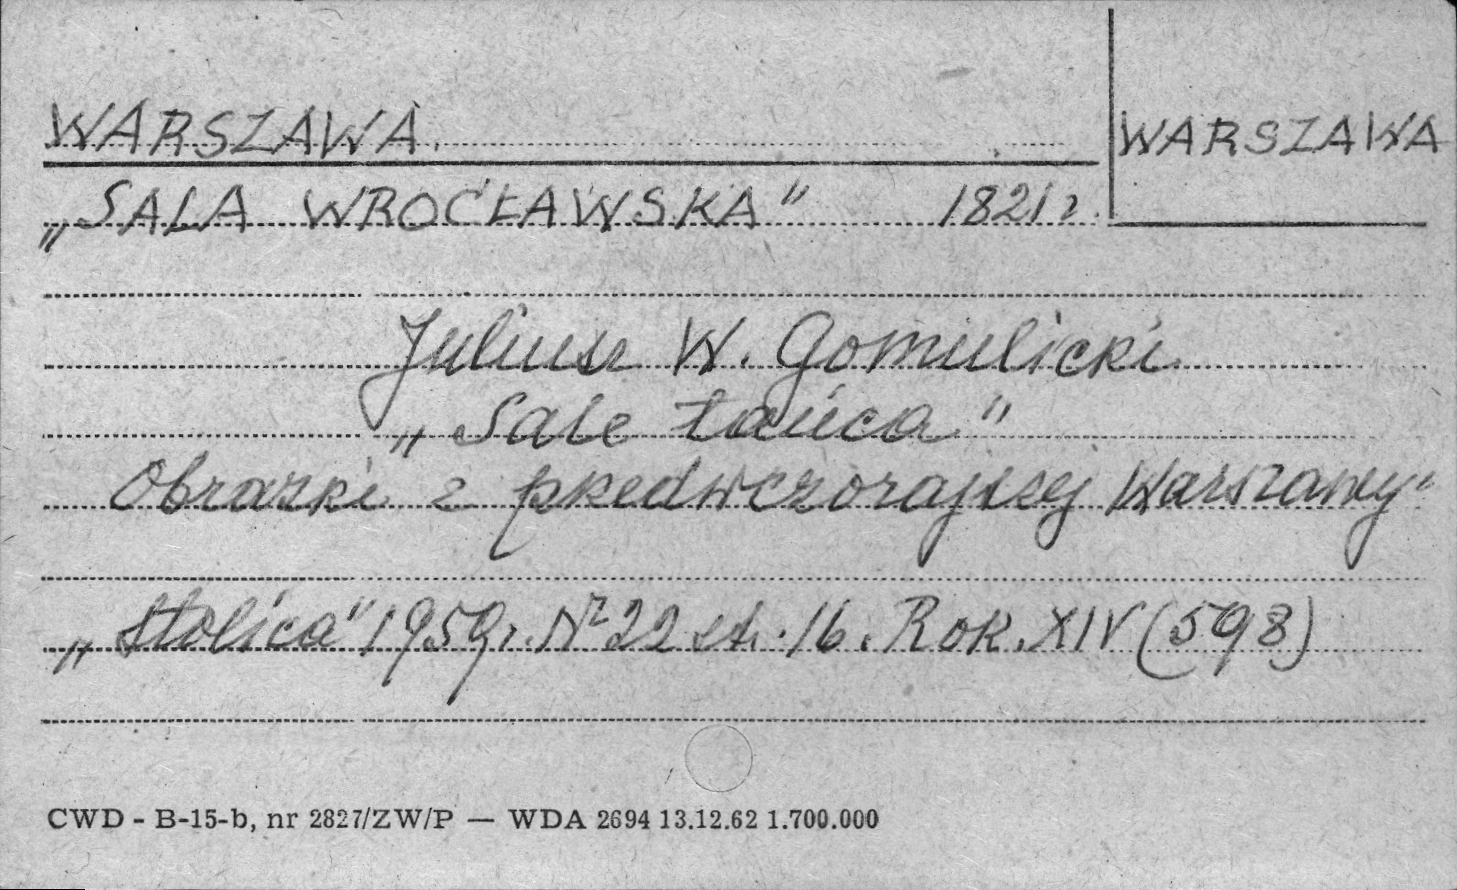 WARSZAWA.
WARSZAWA
„SALA WROCŁAWSKA” 1821 r.
Juliusz W. Gomulicki
„Sale tańca”
Obrazki z przedwczorajszej Warszawy”
„Stolica” 1959 r. Nr 22 st. 16. Rok. XIV (598)
CWD - B-15-b, nr 2827/ZW/P — WDA 2694 13.12.62 1.700.000